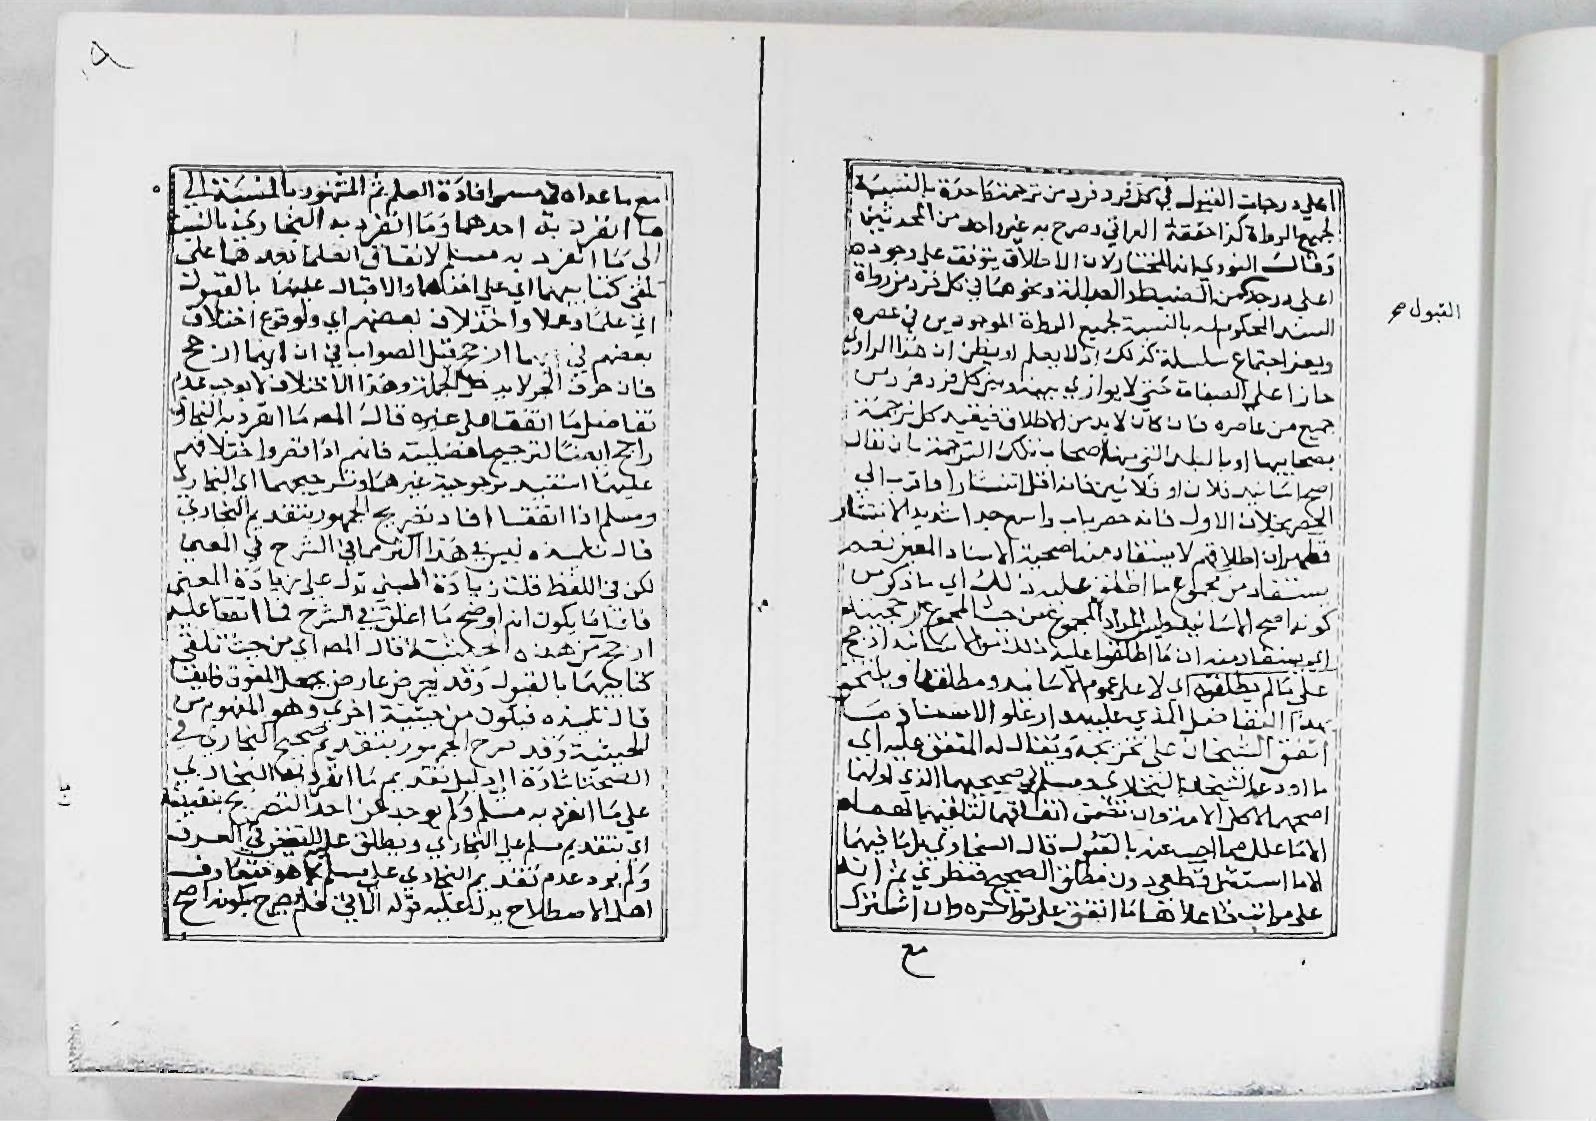 اعلي درجات القبول في كل فرد فرد من ترجمة واحدة بالنسبة
لجميع الرواة كذا حققه العراقي وصرح به غير واحد من المحدثين
وقال النووي انه المختار لان الاطلاق يتوقف علي وجود
اعلي درجة من الضبط والعدالة ونحوهما في كل فرد من رواة
السند المحكوم له بالنسبة لجميع الرواة الموجودين في عصره
ويعز اجتماع سلسلة كذلك اذ لا يعلم او يظن ان هذا الراوي
حاز اعلي الصفات حتي لا يوازي بينه وبين كل فرد فرد من
جميع من عاصره فان كان لابد من الاطلاق فيقيد كل ترجمة
بصحابيها او بالبلد التي منها اصحاب تلك الترجمة بان يقال
اصح اسانيد فلان او فلانيين فانه اقل انتشارا واقرب الي
الحصر بخلاف الاول فانه حصر باب واسع جدا شديد الانتشار
فظهر ان اطلاقهم لا يستفاد منه اصحية الاسناد المعين نعم
يستفاد من مجموع ما اطلق عليه ذلك اي ما ذكر من
كونه اصح الاسانيد وليس المراد المجموع من حيث المجموع
اي يستفاد منه ان ما اطلقوا عليه ذلك من الاسانيد ارجح
علي ما لم يطلقوه اي لا علي عموم الاسانيد ومطلقها ويلتحق
بهذا التفاضل الذي عليه مدار علو الاسناد ما
اتفق الشيخان علي تخريجه ويقال له المتفق عليه اي
ما اودعه الشيخان البخاري ومسلم في صحيحيهما الذي اولهما
اصحهما لا كل الامة وان تضمن اتفاقهما لتلقيهم لهما
الا ما علل مما اجيب عنه بالقبول قال السخاوي بل ما فيهما
الا ما استثني قطعي دون مطلق الصحيح فنظري ثم انه
علي مراتب فاعلاها ما اتفق علي تواتره وان اشترك
مع
القبول صح
مع ما عداه في مسمي افادة العلم ثم المشهور بالنسبة الي
ما انفرد به احدهما وما انفرد به البخاري بالنسبة
الي ما انفرد به مسلم لاتفاق العلما بعدهما علي
تلقي كتابيهما اي علي اخذهما والاقبال عليهما بالقبول
اي علما وعملا واختلاف بعضهم اي ولوقوع اختلاف
بعضهم في ايهما ارجح قيل الصواب في ان ايهما ارجح
فان حرف الجر لا يدخل الجملة وهذا الاختلاف لا يوجب عدم
تفاضل ما اتفقا علي غيره قال المص ما انفرد به البخاري
راجح ايضا لترجيح افضليته فانهم اذا قصروا اختلافهم
عليهما استفيد مرجوحية غيرهما وترجيحهما اي البخاري
ومسلم اذا اتفقا افاد تصريح الجمهور بتقديم البخاري
قال تلميذه ليس في هذا اكثر مما في الشرح في المعني
لكن في اللفظ قلت زيادة المبني تدل علي زيادة المعني
فاقل ما يكون انه اوضح مما اغلق في الشرح فما اتفقا عليه
ارجح من هذه الحيثية قال المص اي من حيث تلقي
كتابيهما بالقبول وقد يعرض عارض يجعل المفوق فايقا
قال تلميذه فيكون من حيثية اخري وهو المفهوم من
الحيثية وقد صرح الجمهور بتقديم صحيح البخاري في
الصحة اشارة الي دليل تقديم ما انفرد به البخاري
علي ما انفرد به مسلم ولم يوجد عن احد التصريح بنقيضه
اي بتقديم مسلم علي البخاري ويطلق عليه النقيض في العرف
ولم يرد عدم تقديم البخاري علي مسلم كما هو متعارف
اهل الاصطلاح يدل عليه قوله الاتي فلم يصرح بكونه اصح